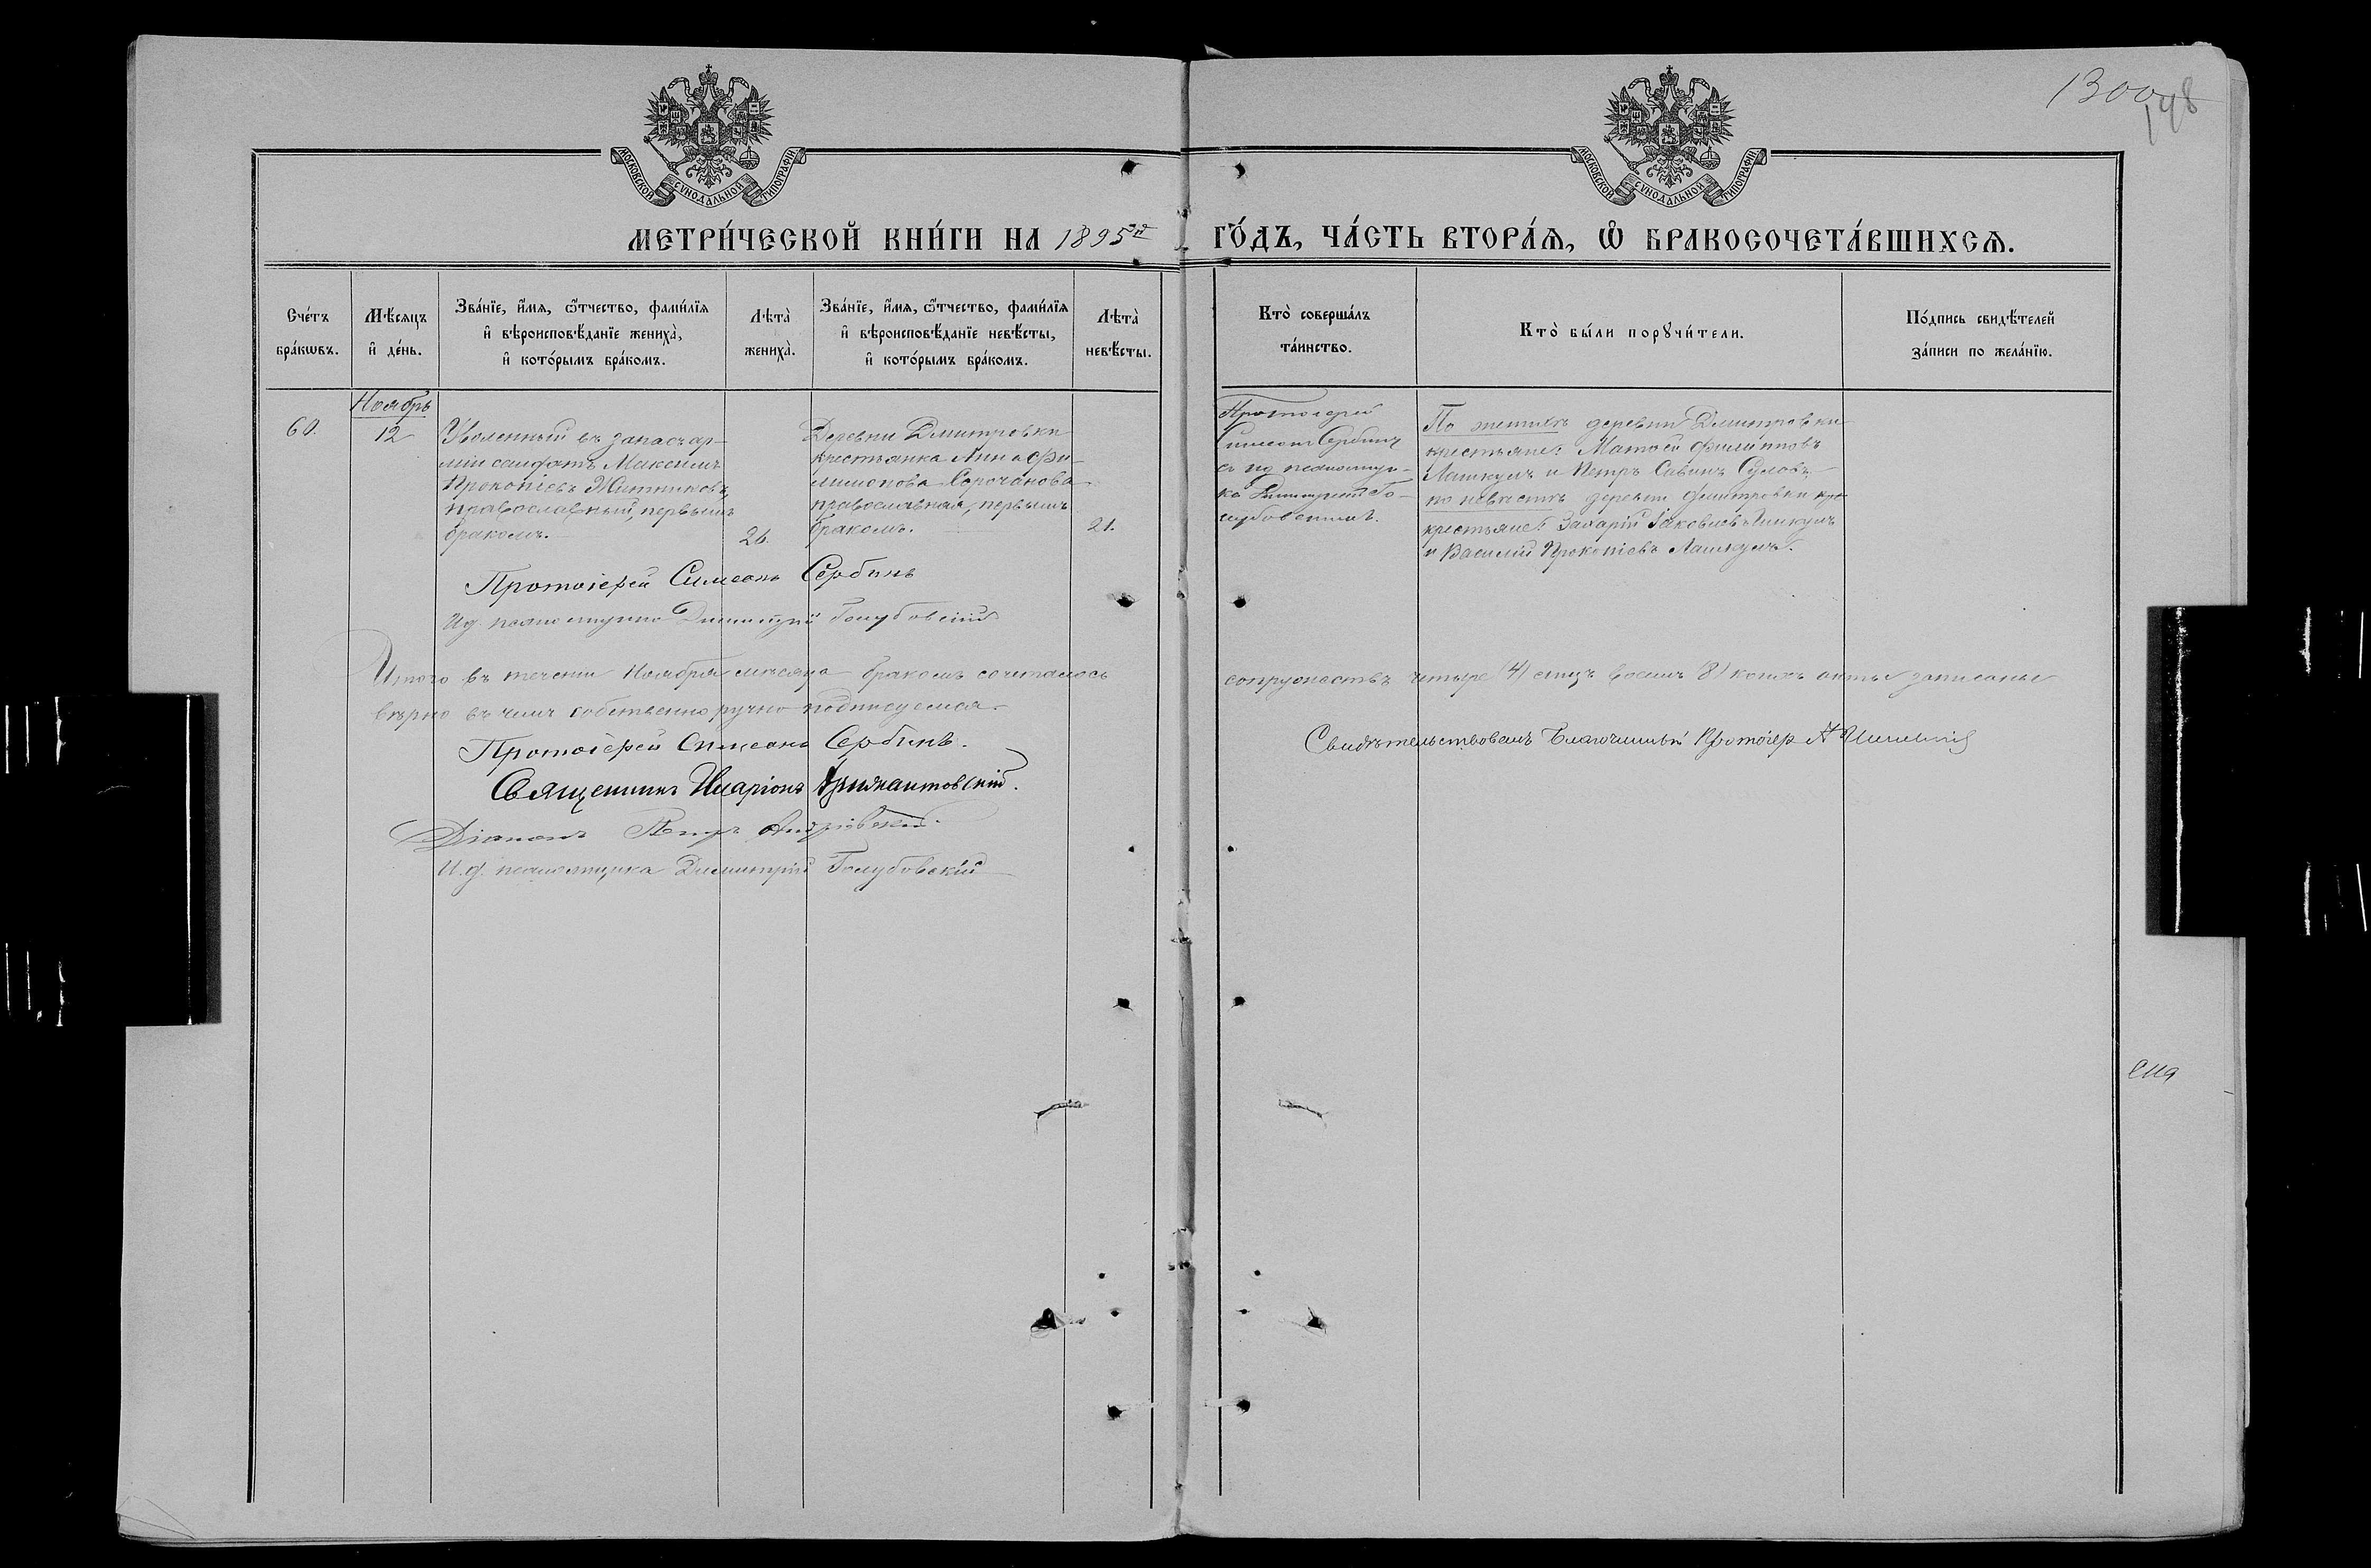 1300
148
МОСКОВСКОЙ СУНОДАЛЬНОЙ ТИПОГРАФІИ
МОСКОВСКОЙ СУНОДАЛЬНОЙ ТИПОГРАФІИ
МЕТРИ́ЧЕСКОЙ КНИ́ГИ НА 1895й ГО́ДЪ, ЧА́СТЬ ВТОРА́Я, Ѽ БРАКОСОЧЕТА́ВШИХСЯ.
Сче́тъ
бра́кѡвъ.
Мѣ́сяцъ
и҆ де́нь.
Зва́нїе, и҆́мя, ѻ҆́тчество, фами́лїя
и҆ вѣроисповѣ́данїе жениха̀,
и҆ кото́рымъ бра́комъ.
Лѣта̀
жениха̀.
Зва́нїе, и҆́мя, ѻ҆́тчество, фами́лїя
и҆ вѣроисповѣ́данїе невѣ́сты,
и҆ кото́рымъ бра́комъ.
Лѣта̀
невѣ́сты.
Кто̀ соверша́лъ
та́инство.
Кто̀ бы́ли порꙋчи́тели.
По́дпись свидѣ́телей
за́писи по жела́нїю.
60.
Ноябрь
12
Уволенный въ запасъ ар-
міи солдатъ Максимъ
Прокопіевъ Житниковъ,
православный, первымъ
бракомъ.
26.
Деревни Дмитровки
крестьянка Анна Фи-
лимонова Сорочанова
православная, первымъ
бракомъ.
21.
Протоіерей
Симеонъ Сербинъ
съ псаломщи-
ка Димитріемъ Го-
лубовскимъ.
По женихѣ деревни Дмитровки
крестьяне: Матѳей Филипповъ
Лашкулъ и Петръ Савинъ
по невѣстѣ деревни Дмитровки
крестьяне: Захарій Іаковлевъ
и Василій Прокопіевъ Лашкулъ.
Протоіерей Симеонъ Сербинъ
И.д. псаломщика Димитрій Голубовскій
Итого въ теченіи Ноября мѣсяца бракомъ сочеталось супружествъ четыре (4) лицъ восемь (8) коихъ акты записаны
вѣрно въ чемъ собственноручно подписуемся.
Протоіерей Симеонъ Сербинъ.
Свидѣтельствовалъ Благочинный Протоіер. А.
Священникъ Иларіонъ
Діаконъ Петръ Андріевскій.
И.д. псаломщика Димитрій Голубовскій